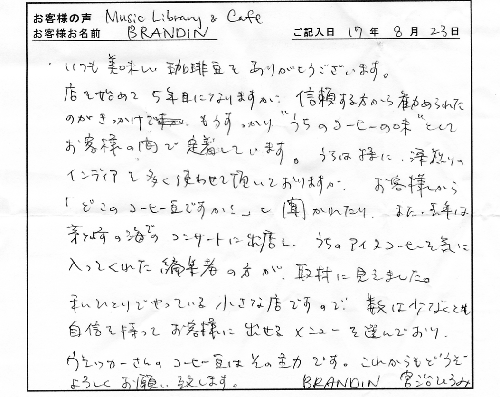 お客様の声 Music Library & Cafe
お客様お名前 BRANDIN ご記入日 17年 8月 23日
・いつも美味しい珈琲豆をありがとうございます。
店を始めて5年目になりますが、信頼する方から勧められた
のがきっかけで、もうすっかり"うちのコーヒーの味"として
お客様の間で定着しています。うちは特に、深煎りの
インディアを多く使わせて頂いておりますが、お客様から
「どこのコーヒー豆ですか?」と聞かれたり、また、去年は
茅ヶ崎の海でのコンサートに出店し、うちのアイスコーヒーを気に
入ってくれた編集者の方が、取材に見えました。
私ひとりでやっている小さな店ですので、数は少なくとも
自信を持ってお客様に出せるメニューを選んでおり、
さんのコーヒー豆はその主力です。これからもどうぞ
よろしくお願い致します。 BRANDIN 宮治ひろみ